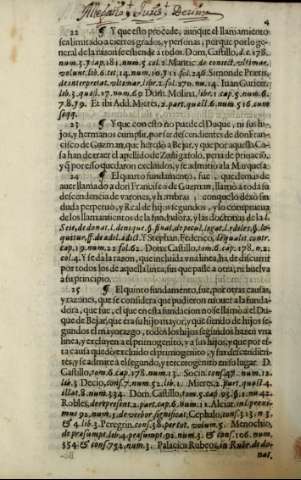 4
22 ¶ Y que esto procede, aunque el llamamiento
sea limitado a ciertos grados, y personas, porque por lo gene-
ral de la razon se estiende a todos. Dom. Castillo, d. c. 178.
num. 3. cap. 181. num. 3. col. 2. Mantic. de coniect. ultimar.
volunt. lib. 6. tit. 14. num.
de interpretat. ultimar. lib. 2. fol. 270. nu. 14. Iuan Gutierr.
lib. 3. quaest. 17. num. 69 Dom. Molina, lib. 1. cap. 5. num. 6.
7. 8. 19. Et ibi Add. Mieres, 2. part. quaest. 6. num 516. cum
seqq.
23 ¶ Y que con esto no puede el Duque, ni sus hi-
jos, y hermanos cumplir, por ser descendientes de don Fran-
cisco de Guzman, que heredò a Bejar, y que por aquella Ca-
sa han de traer el apellido de Zuñiga solo, pena de privaciõ,
y q̃ por esso quedaron excluidos, y se admitiò a la Marquesa
24 ¶ El quinto fundamento, fue, que demas de
auer llamado a don Francisco de Guzman, llamò a toda su
descendencia de varones, y hembras, con que lo dexò sin
duda perpetuo, y Real de hijos segundos, y lo comprueua
de los llamamientos de la fundadora, y las doctrinas de la l.
Seis, de donat. l. denique. §.
Y Stephan. Federic.
cap. 19. num. 22. fol. 62. Dom. Castillo, tom. 6. cap. 178. n. 2.
col. 4. Y se da la razon, que incluida vna linea, ha de discurrir
por todos los de aquella linea, sin que passe a otra, ni buelva
a su principio.
25 ¶ El quinto fundamento, fue, por otras causas,
y razones, que se considera que pudieron mouer a la funda-
dora, que fue, el que en esta fundacion no se llamò al Du-
que de Bejar, que era su hijo mayor, y que siendo de hijos se-
gundos el mayorazgo, todos los hijos segundos hazen vna
linea, y excluyen a el primogenito, y a sus hijos, y que por es-
ta causa quedò excluido el primogenito, y sus descendien-
tes, y se admite à el segundo, y tercerogenito en su lugar. D.
Castillo, tom. 6. cap. 178. num. 13. Socin. cons. 47. num. 12.
lib. 3 Decio, cons. 7. num. 52. lib. 1. Mieres, 2. part. quaest. 4.
illat. 8. num. 334. Dom. Castillo, tom. 5. cap. 93. §. 1. nu. 42
Robles, de represent. 2. part. cap. 6. num. 12. Alciat.
num. 3. de verbor significat; Cephalo, cons. 313. n. 3.
& 4. lib. 3. Peregrin. cons. 38. per tot. volum. 5. Menochio,
de praesumpt. lib. 4. praesumpt. 92. num. 3. & cons. 106. num.
354. & cons. 752. num. 3. Palacios Rubeos, in Rubr. de do-
nat.